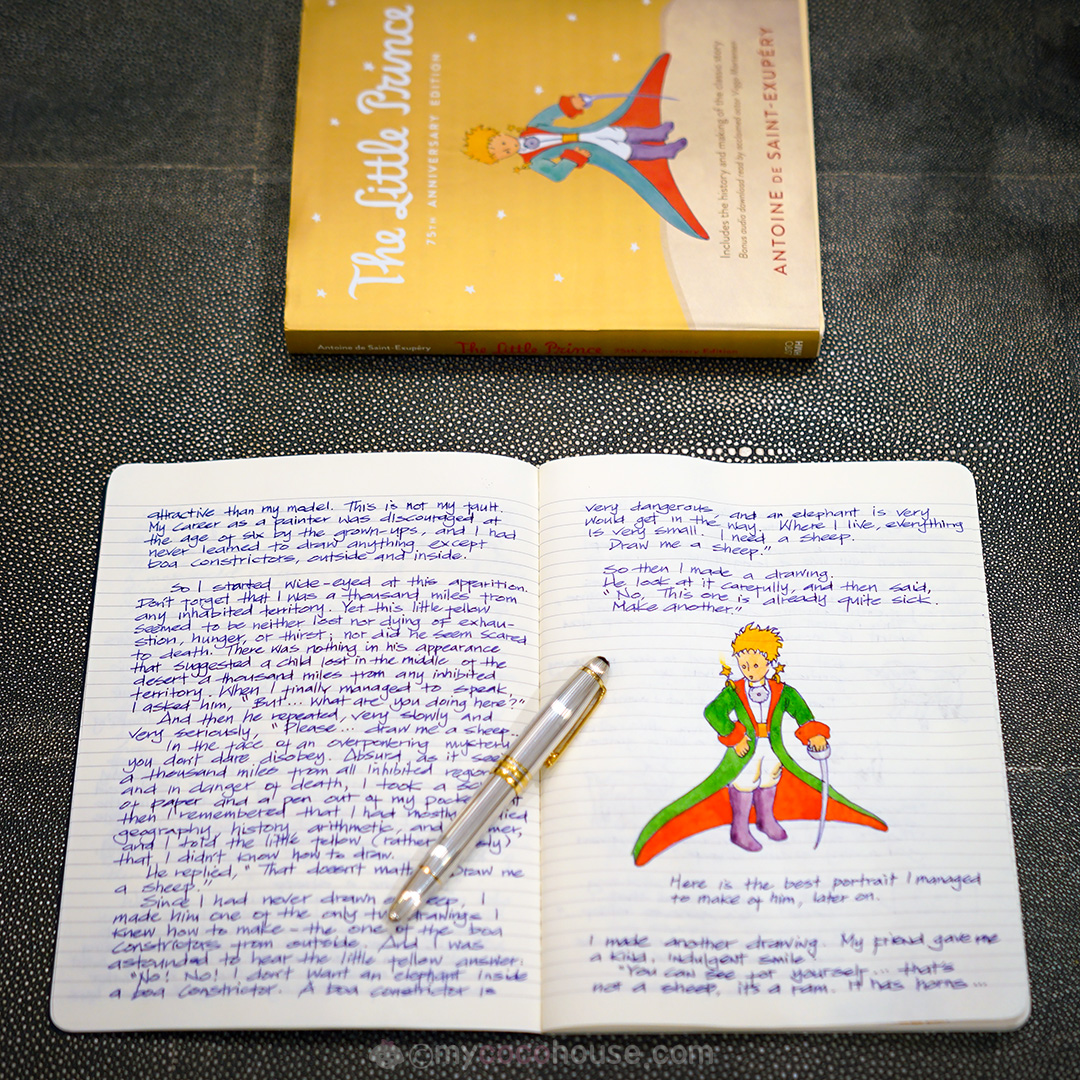 The Little Prince
75TH ANNIVERSARY EDITION
Includes the history and making of the classic story
Bonus audio download read by acclaimed actor Viggo Mortensen
ANTOINE DE SAINT-EXUPÉRY
Antoine de Saint-Exupéry The Little Prince 75th Anniversary Edition
attractive than my model. This is not my fault.
My career as a painter was discouraged at
the age of six by the grown-ups, and I had
never learned to draw anything except
boa constrictors, outside and inside.
So I started wide-eyed at this apparition.
Don't forget that I was a thousand miles from
any inhabited territory. Yet this little fellow
seemed to be neither lost nor dying of exhau-
stion, hunger, or thirst; nor did he seem scared
to death. There was nothing in his appearance
that suggested a child lost in the middle of the
desert a thousand miles from any inhibited
territory. When I finally managed to speak,
I asked him, "But... what are you doing here?"
And then he repeated, very slowly and
very seriously, "Please... draw me a sheep..
In the face of an overpowering mystery
you don't dare disobey. Absurd as it see
a thousand miles from all inhibited region
and in danger of death, I took a
of paper and a pen out of my pocket
then I remembered that I had mostly died
geography, history, arithmetic, and mmer,
and I told the little fellow (rather ssly)
that I didn't know how to draw.
He replied, "That doesn't matt Draw me
a sheep."
Since I had never drawn eep, I
made him one of the only two drawings I
knew how to make - the one of the boa
constrictors from outside. And I was
astounded to hear the little fellow answer:
"No! No! I don't want an elephant inside
a boa constrictor. A boa constrictor is
very dangerous, and an elephant is very
would get in the way. Where I live, everything
is very small. I need a sheep.
Draw me a sheep."
So then I made a drawing.
He look at it carefully, and then said,
"No, This one is already quite sick.
Make another."
Here is the best portrait I managed
to make of him, later on.
I made another drawing. My friend gave me
a kind, indulgent smile
"You can see for yourself... that's
not a sheep, it's a ram. It has horns...
©mycocohouse.com